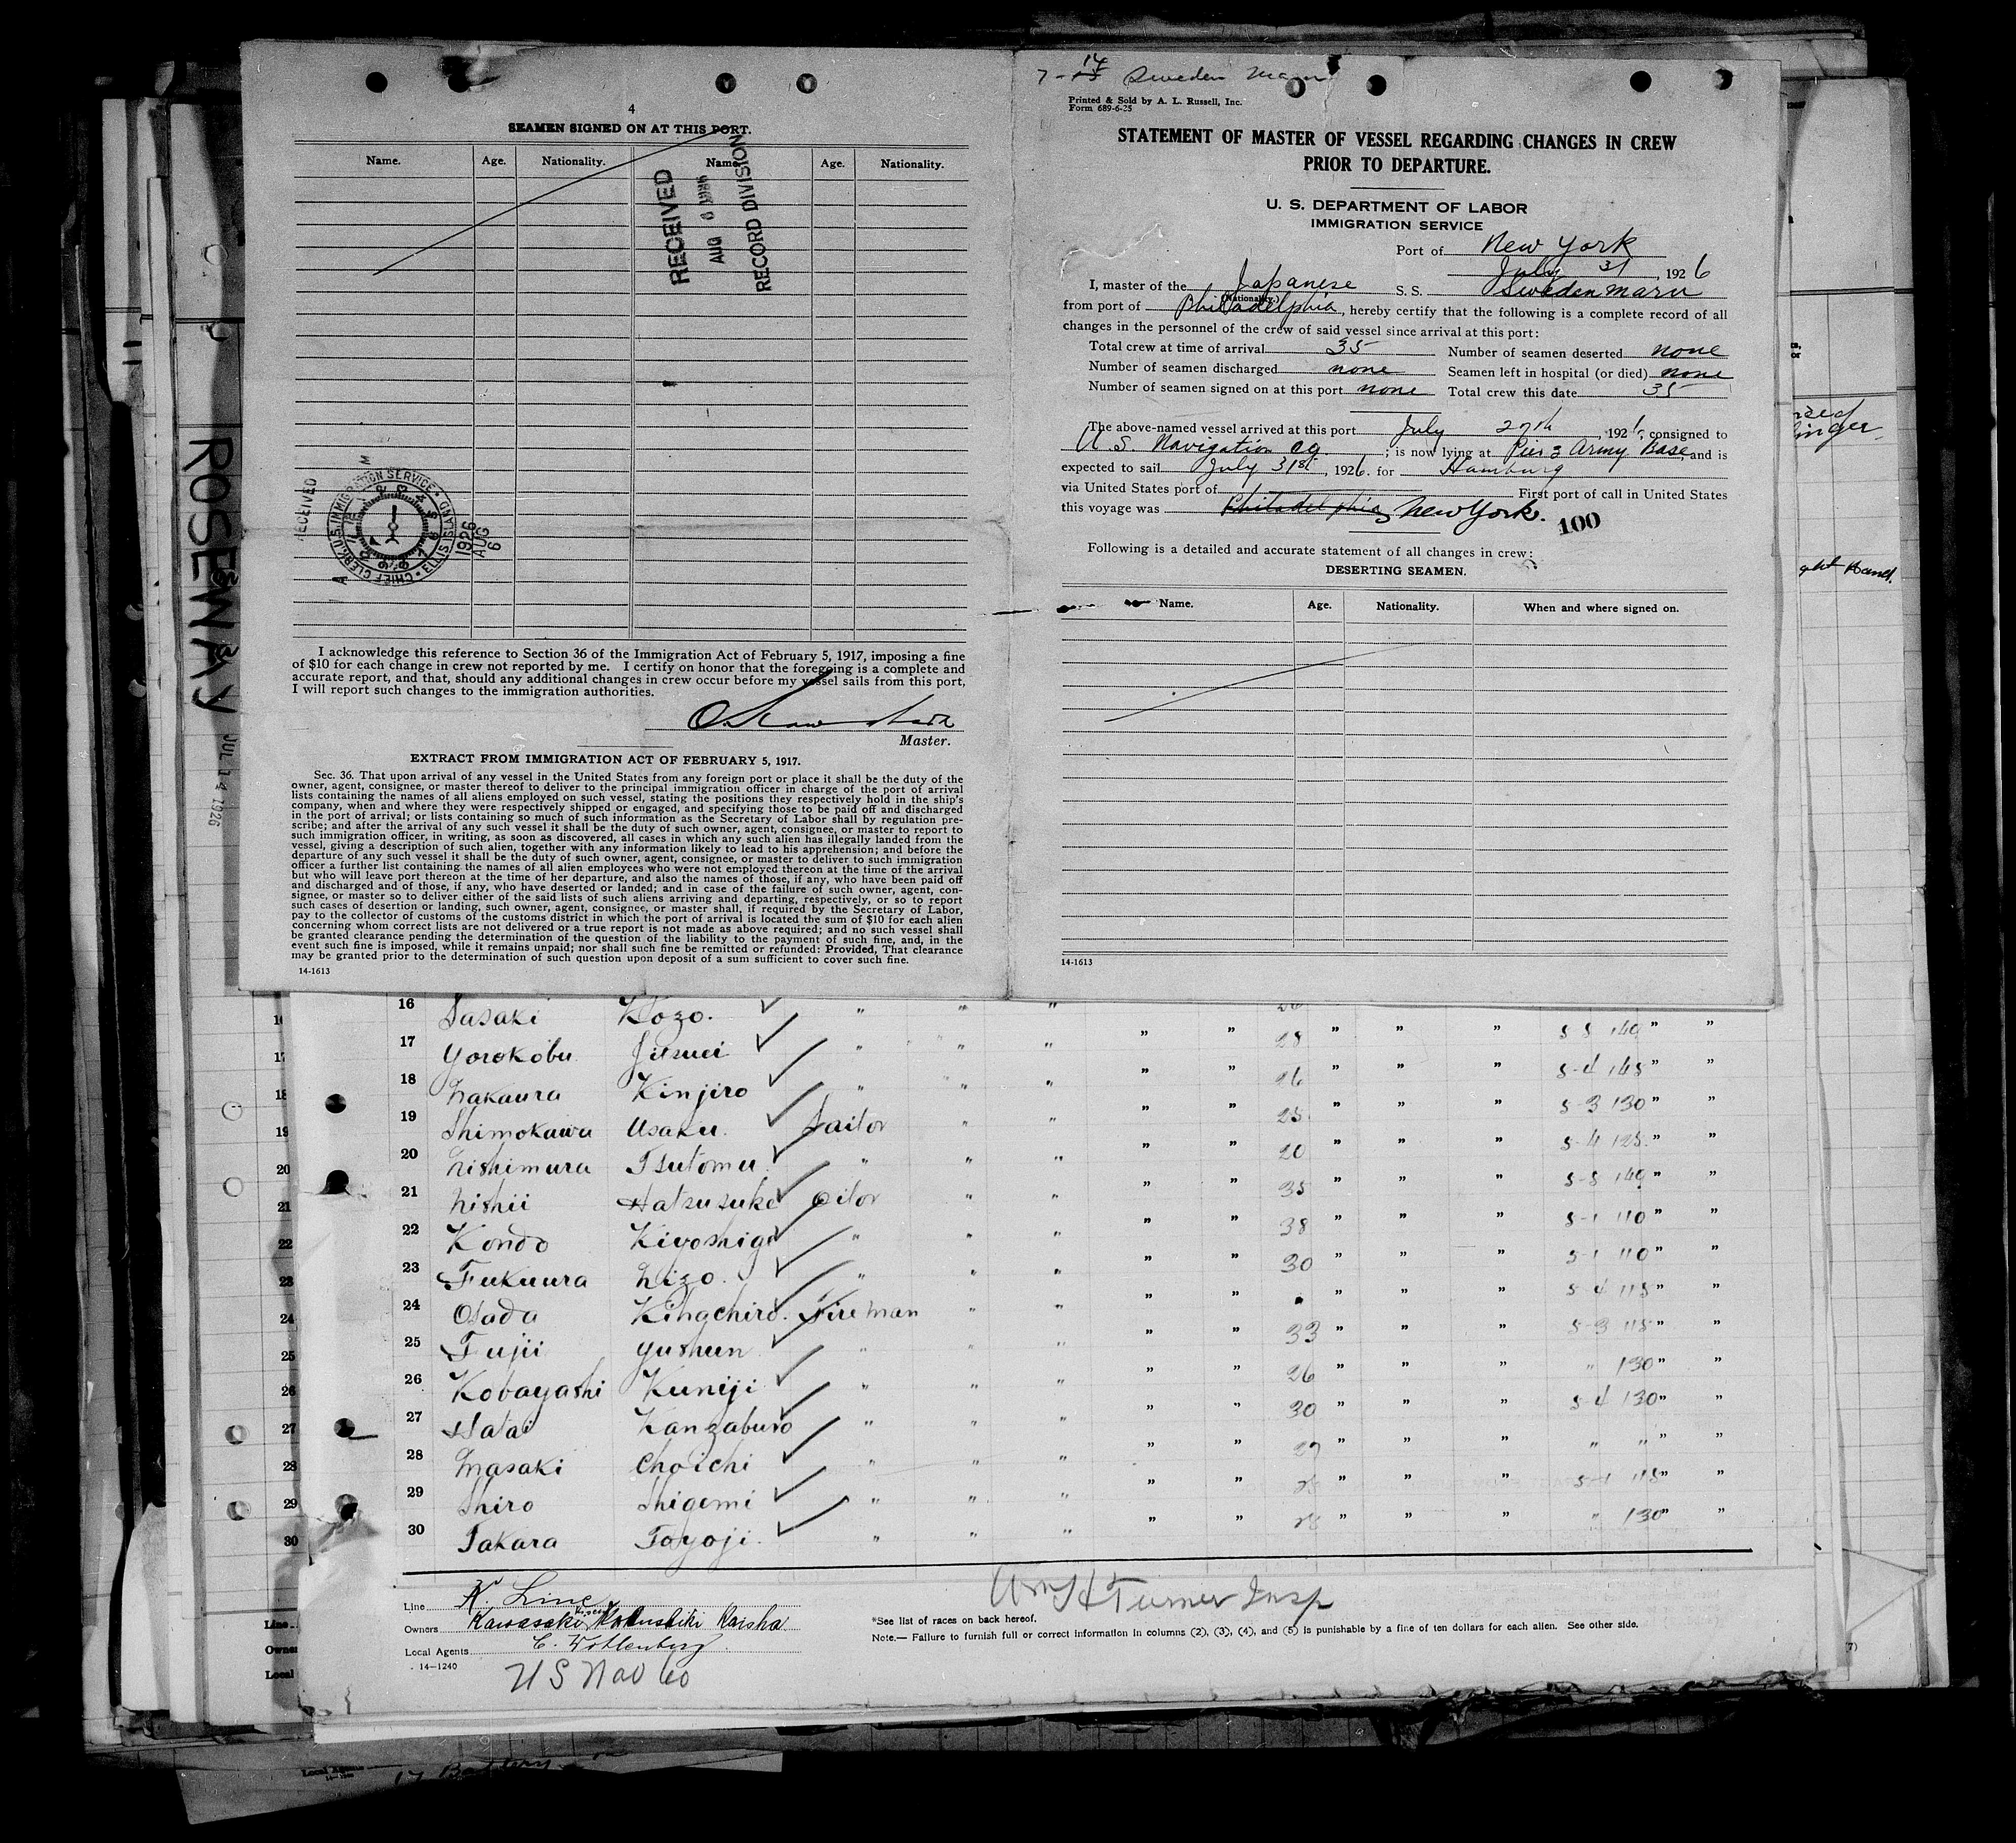 4
SEAMEN SIGNED ON AT THIS PORT.
Name. Age. Nationality. Name. Age. Nationality.
RECEIVED
AUG 6 1926
RECORD DIVISION
RECEIVED
CHIEF CLERK, U.S. IMMIGRATION SERVICE • ELLIS ISLAND
1926
AUG
6
I acknowledge this reference to Section 36 of the Immigration Act of February 5, 1917, imposing a fine
of $10 for each change in crew not reported by me. I certify on honor that the foregoing is a complete and
accurate report, and that, should any additional changes in crew occur before my vessel sails from this port,
I will report such changes to the immigration authorities.
Master.
EXTRACT FROM IMMIGRATION ACT OF FEBRUARY 5, 1917.
Sec. 36. That upon arrival of any vessel in the United States from any foreign port or place it shall be the duty of the
owner, agent, consignee, or master thereof to deliver to the principal immigration officer in charge of the port of arrival
lists containing the names of all aliens employed on such vessel, stating the positions they respectively hold in the ship's
company, when and where they were respectively shipped or engaged, and specifying those to be paid off and discharged
in the port of arrival; or lists containing so much of such information as the Secretary of Labor shall by regulation pre-
scribe; and after the arrival of any such vessel it shall be the duty of such owner, agent, consignee, or master to report to
such immigration officer, in writing, as soon as discovered, all cases in which any such alien has illegally landed from the
vessel, giving a description of such alien, together with any information likely to lead to his apprehension; and before the
departure of any such vessel it shall be the duty of such owner, agent, consignee, or master to deliver to such immigration
officer a further list containing the names of all alien employees who were not employed thereon at the time of the arrival
but who will leave port thereon at the time of her departure, and also the names of those, if any, who have been paid off
and discharged and of those, if any, who have deserted or landed; and in case of the failure of such owner, agent, con-
signee, or master so to deliver either of the said lists of such aliens arriving and departing, respectively, or so to report
such cases of desertion or landing, such owner, agent, consignee, or master shall, if required by the Secretary of Labor,
pay to the collector of customs of the customs district in which the port of arrival is located the sum of $10 for each alien
concerning whom correct lists are not delivered or a true report is not made as above required; and no such vessel shall
be granted clearance pending the determination of the question of the liability to the payment of such fine, and, in the
event such fine is imposed, while it remains unpaid; nor shall such fine be remitted or refunded: Provided, That clearance
may be granted prior to the determination of such question upon deposit of a sum sufficient to cover such fine.
14-1613
7-14 Sweden Maru
Printed & Sold by A. L. Russell, Inc.
Form 689-6-25
STATEMENT OF MASTER OF VESSEL REGARDING CHANGES IN CREW
PRIOR TO DEPARTURE.
U. S. DEPARTMENT OF LABOR
IMMIGRATION SERVICE
Port of New York
July 31, 1926
I, master of the Japanese S. S. Sweden maru
(Nationality.)
from port of Philadelphia, hereby certify that the following is a complete record of all
changes in the personnel of the crew of said vessel since arrival at this port:
Total crew at time of arrival 35 Number of seamen deserted none
Number of seamen discharged none Seamen left in hospital (or died) none
Number of seamen signed on at this port none Total crew this date 35
The above-named vessel arrived at this port July 27th, 1926, consigned to
U. S. Navigation Co.; is now lying at Pier 3 Army Base, and is
expected to sail July 31st, 1926. for Hamburg
via United States port of First port of call in United States
this voyage was Philadelphia, New York. 100
Following is a detailed and accurate statement of all changes in crew:
DESERTING SEAMEN.
Name. Age. Nationality. When and where signed on.
14-1613
ROSEWAY JUL 14 1926
16 Sasaki Kozo. " " "
17 Yorokobu Jusuei " " " " " 28 " " " 5-5 140 " "
18 Nakaura Kinjiro " " " " " 26 " " " 5-4 145 " "
19 Shimokawa Usaku. Sailor " " " " 25 " " " 5-3 130 " "
20 Nishimura Tsutomu " " " " " 20 " " " 5-4 125 " "
21 Nishii Hatsusuke Oiler " " " " 35 " " " 5-5 140 " "
22 Kondo Kiyoshige " " " " " 38 " " " 5-1 110 " "
23 Fukuura Nizo. " " " " " 30 " " " 5-1 110 " "
24 Osada Kingchiro. Fireman " " " " " " " 5-4 115 " "
25 Fujii Yushun " " " " 33 " " " 5-3 115 " "
26 Kobayashi Kuniji " " " " " 26 " " " " 130 " "
27 Hatai Kanzaburo " " " " " 30 " " " 5-4 130 " "
28 Masaki Choichi " " " " " 27 " " " " " " "
29 Shiro Shigemi " " " " " " " " 5-1 115 " "
30 Takara Toyoji. " " " " " 28 " " " " 130 " "
Line K. Line
Owners Kawasaki Kisen Kabushiki Kaisha.
Local Agents C. Wohlenberg
14—1240
U S Nav Co
Wm H Turner Insp
*See list of races on back hereof.
Note.— Failure to furnish full or correct information in columns (2), (3), (4), and (5) is punishable by a fine of ten dollars for each alien. See other side.